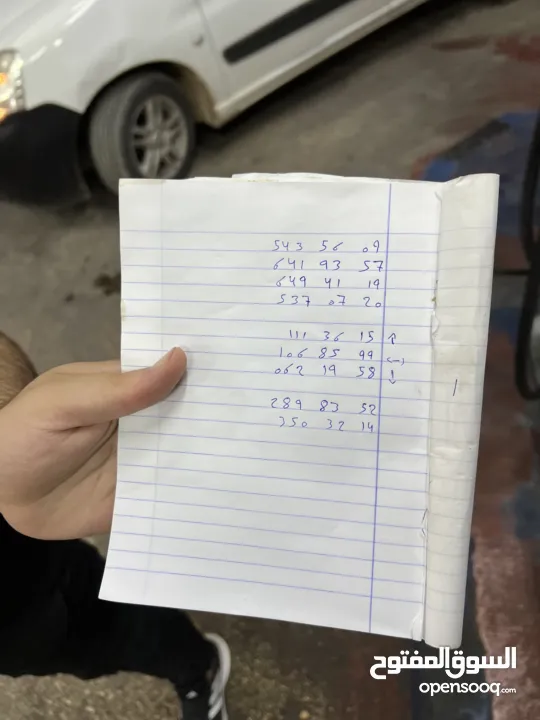 543 56 09
641 93 57
649 41 19
537 07 20
111 36 15 ↑
106 85 99 (-)
062 19 58 ↓
289 83 52
350 32 14
السوق المفتوح
opensooq.com